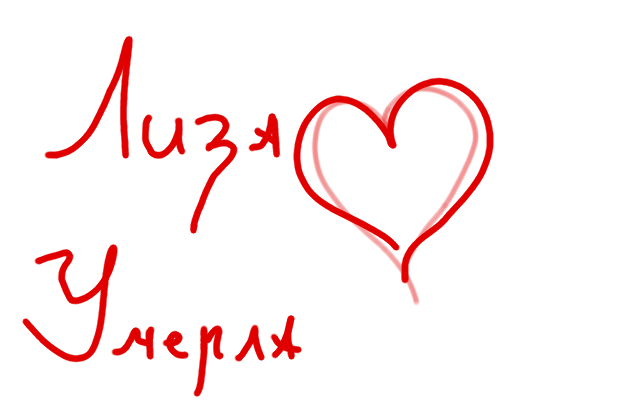 Лиза
Умерла